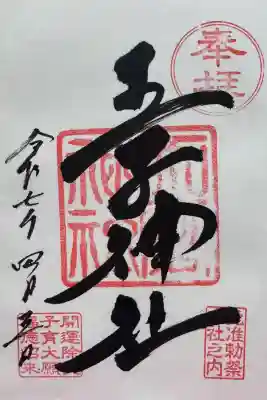 奉拝
王子神社
令和七年四月五日
准勅祭
社之内
開運除
子育大願
招来